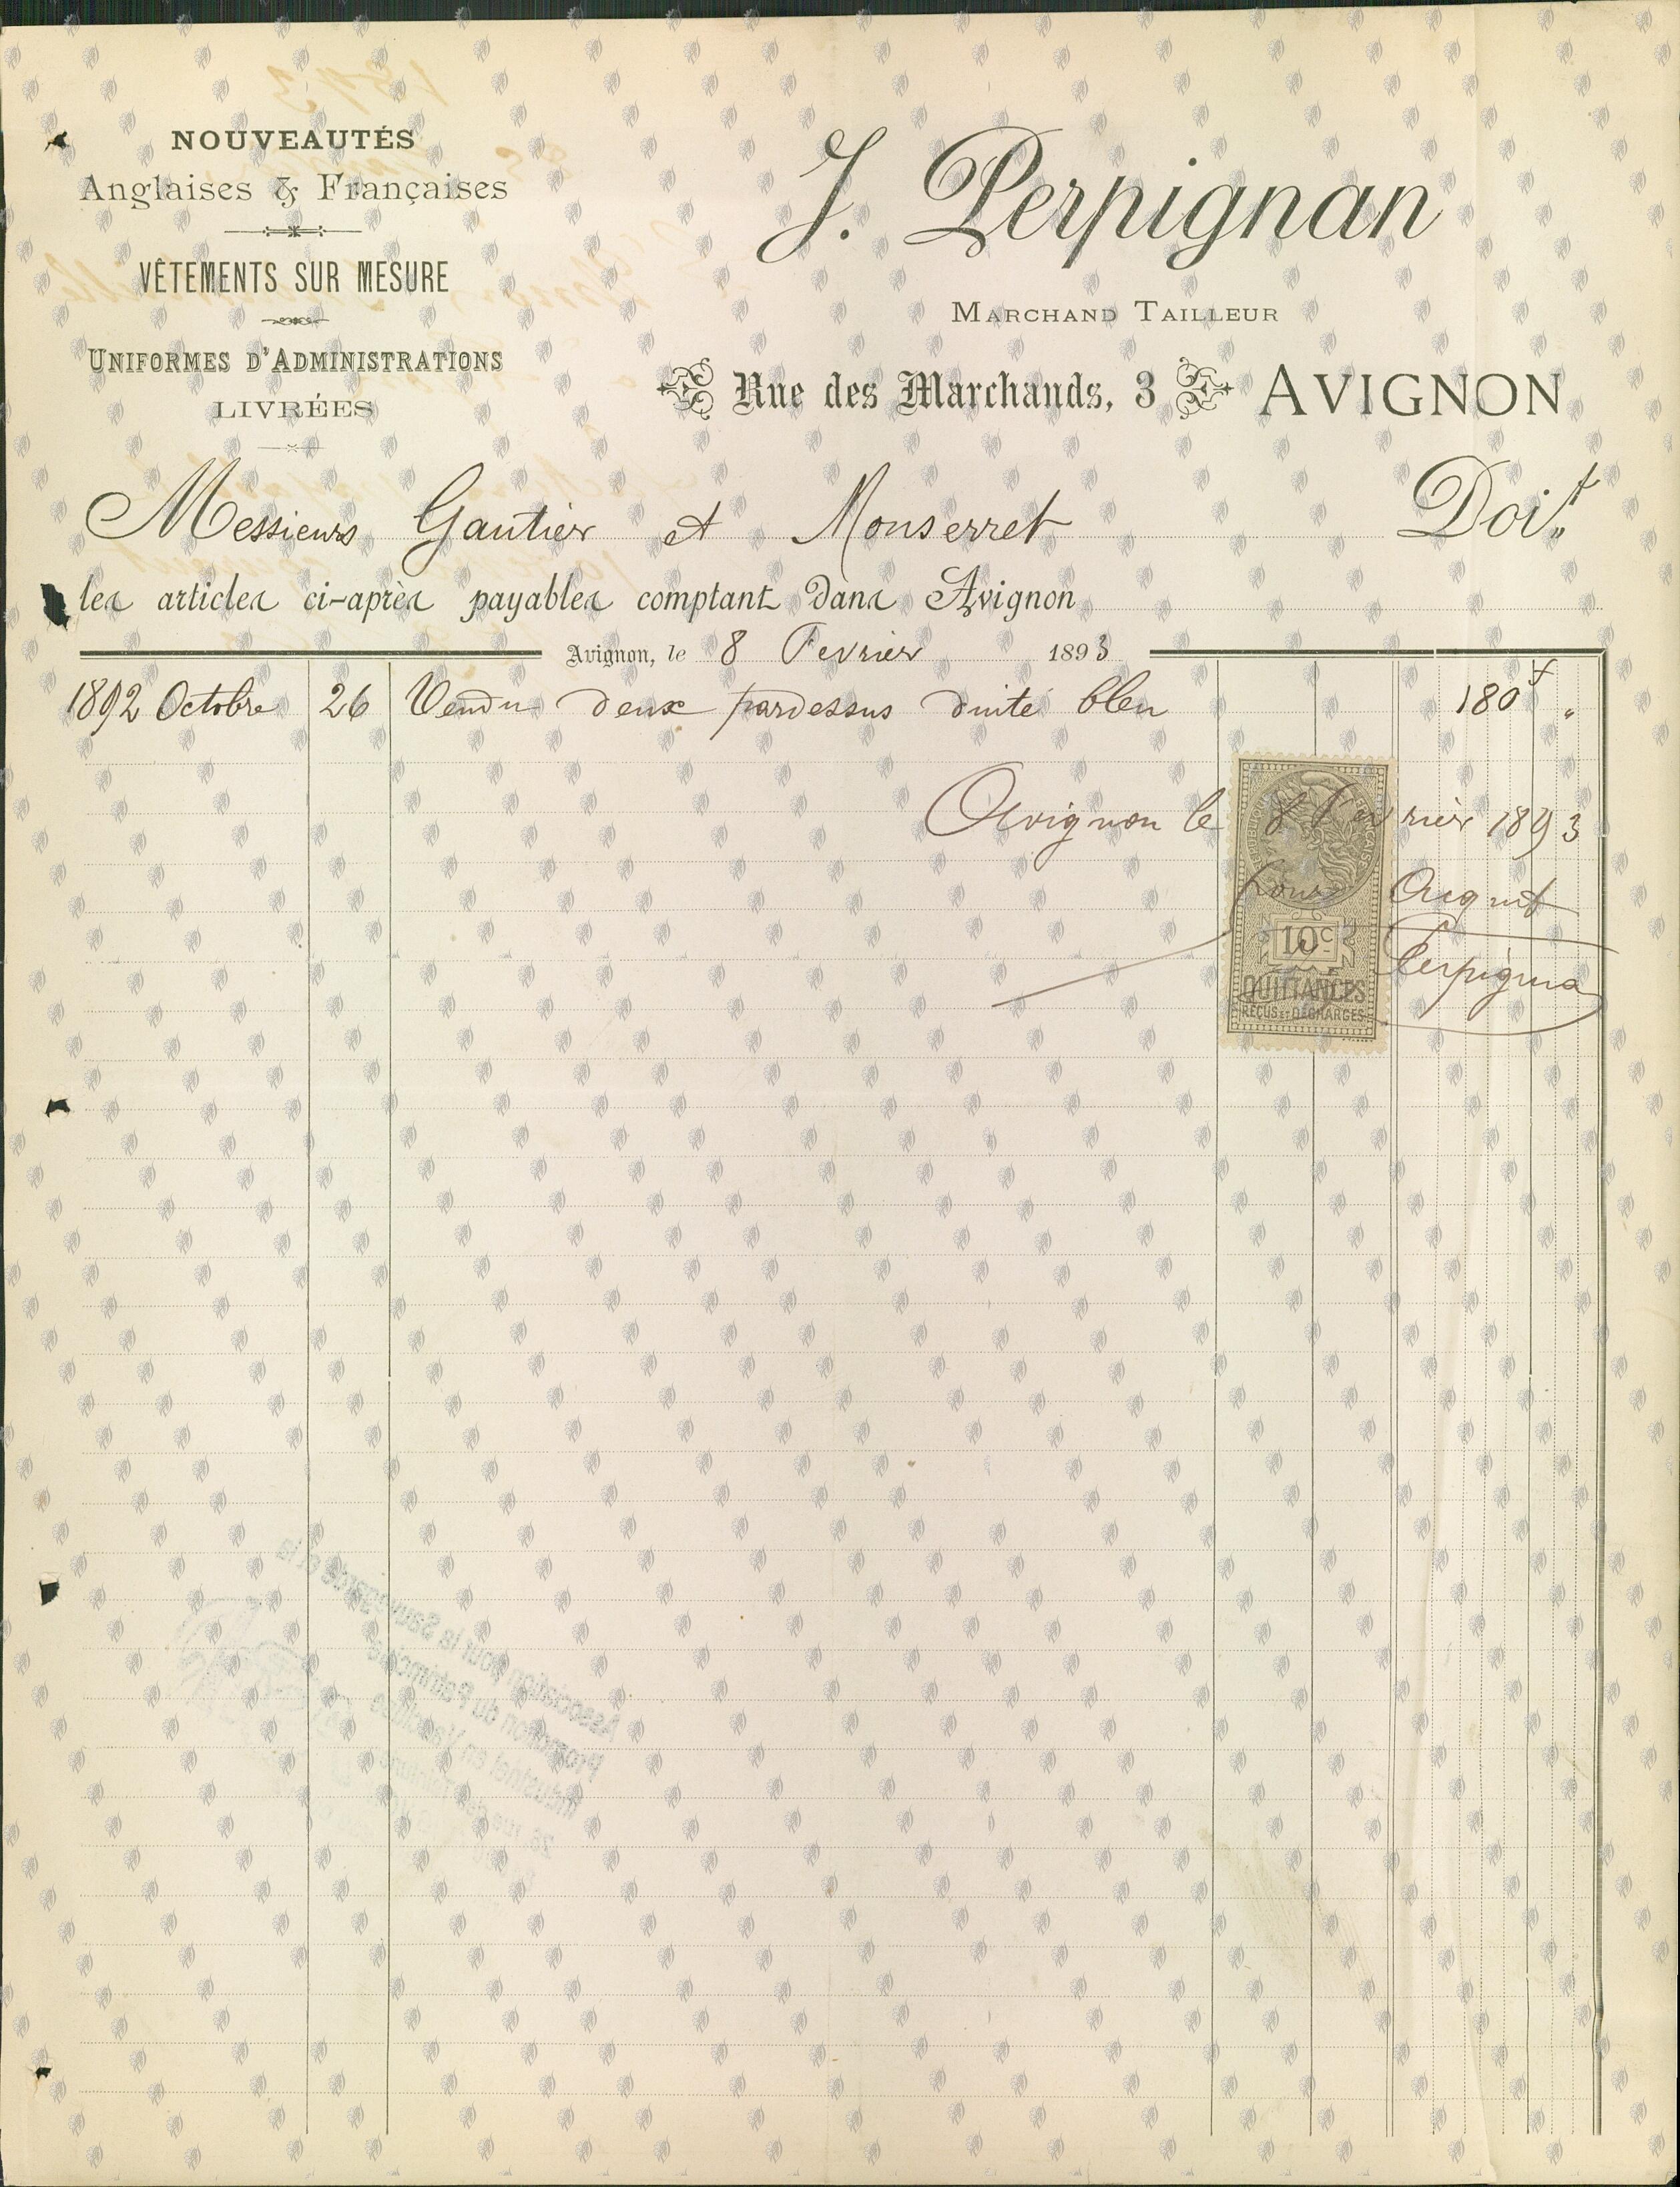 NOUVEAUTÉS
Anglaises & Françaises
VÊTEMENTS SUR MESURE
UNIFORMES D'ADMINISTRATIONS
LIVRÉES
J. Perpignan
MARCHAND TAILLEUR
Rue des Marchands, 3 AVIGNON
Messieurs Gautier et Monserret Doit
les articles ci-après payables comptant dans Avignon
Avignon, le 8 Fevrier 1893
1892 Octobre 26 Vendu deux pardessus duité bleu 180f "
Avignon le 8 Fevrier 1893
Pour Acquit
Perpignan
RÉPUBLIQUE FRANÇAISE
10c
QUITTANCES
REÇUS ET DÉCHARGES
Association pour la Sauvegarde et la
Promotion du Patrimoine
Industriel en Vaucluse